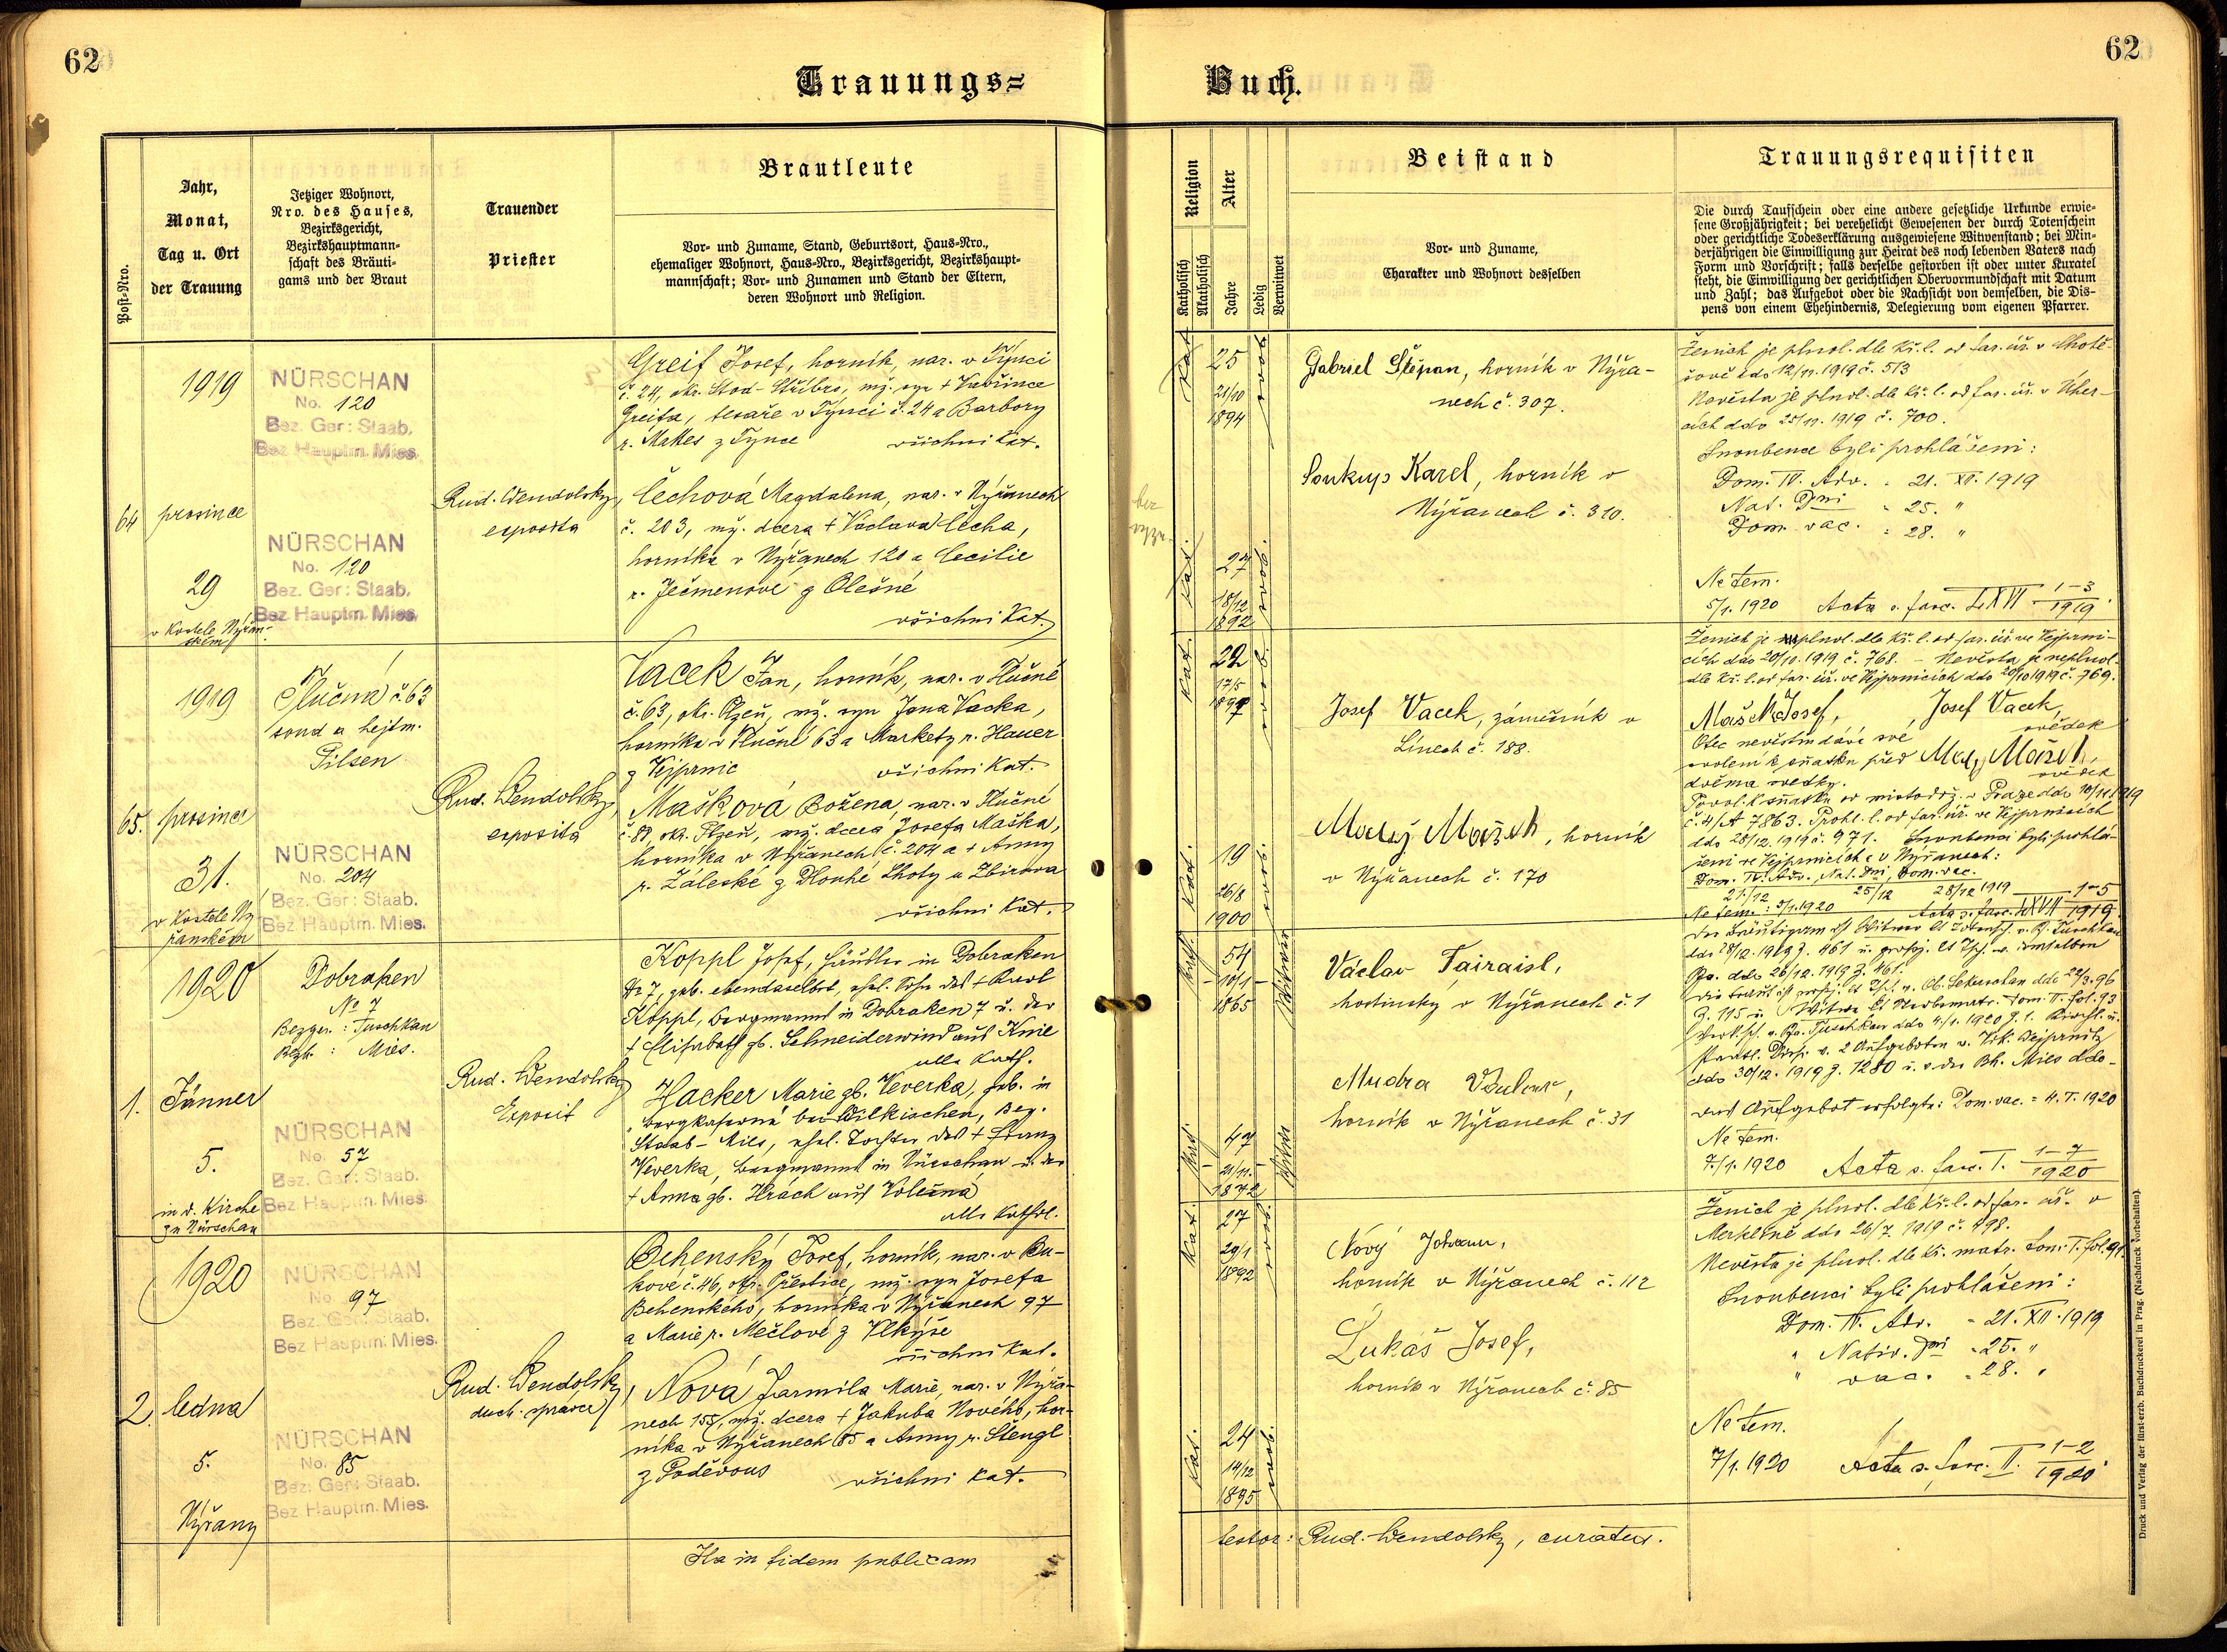 62
Trauungs=
Post-Nro.
Jahr,
Monat,
Tag u. Ort
der Trauung
Jetziger Wohnort,
Nro. des Hauses,
Bezirksgericht,
Bezirkshauptmann-
schaft des Bräuti-
gams und der Braut
Trauender
Priester
Brautleute
Vor- und Zuname, Stand, Geburtsort, Haus-Nro.,
ehemaliger Wohnort, Haus-Nro., Bezirksgericht, Bezirkshaupt-
mannschaft; Vor- und Zunamen und Stand der Eltern,
deren Wohnort und Religion.
64
1919
prosince
29
v Kostele Nýřan-
ském
NÜRSCHAN
No. 120
Bez. Ger: Staab.
Bez Hauptm. Mies.
NÜRSCHAN
No. 120
Bez. Ger: Staab.
Bez Hauptm. Mies.
Rud. Wendolsky,
exposita
Greif Josef, horník, nar. v Týnci
č. 24, okr. Stod-Stříbro, mž. syn + Vavřince
Greifa, tesaře v Týnci č. 24 a Barbory
r. Makes z Týnce všichni kat.
Čechová Magdalena, nar. v Nýřanech
č. 203, mž. dcera + Václava Čecha,
horníka v Nýřanech 120 a Cecilie
r. Ječmenové z Olešné
všichni Kat.
65.
1919
prosince
31.
v Kostele Ný
řanském
Tlučná č. 63
soud a hejtm.
Pilsen
NÜRSCHAN
No. 204
Bez. Ger: Staab.
Bez Hauptm. Mies.
Rud. Wendolsky,
exposita
Vacek Jan, horník, nar. v Tlučné
č. 63, okr. Plzeň, mž. syn Jana Vacka,
horníka v Tlučné 63 a Markety r. Hauer
z Vejprnic všichni Kat.
Mašková Božena, nar. v Tlučné
č. 87, okr. Plzeň, mž. dcera Josefa Maška,
horníka v Nýřanech č. 204 a + Anny
r. Záleské z Dlouhé Lhoty u Zbirova
všichni Kat.
1.
1920
Jänner
5.
in d. Kirche
zu Nürschan
Dobraken
No 7
Bezger.: Tuschkau
Bzh.: Mies.
NÜRSCHAN
No. 57
Bez. Ger: Staab.
Bez Hauptm. Mies.
Rud. Wendolsky
Exposit
Koppl Josef, Häusler in Dobraken
No 7, geb. ebendaselbst, ehel. Sohn des + Karl
Koppl, Bergmanns in Dobraken 7 u. der
+ Elisabeth gb. Schneiderwind aus Knie
alle kath.
Hacker Marie gb. Veverka, geb. in
Bergkaserne bei Wilkischen, Bez.
Staab-Mies, ehel. Tochter des + Franz
Veverka, Bergmanns in Nürschan u. der
+ Anna gb. Hrách aus Volešná
alle kathol.
2.
1920
ledna
5.
Nýřany
NÜRSCHAN
No. 97
Bez. Ger: Staab.
Bez Hauptm. Mies.
NÜRSCHAN
No. 85
Bez. Ger: Staab.
Bez Hauptm. Mies.
Rud. Wendolsky,
duch. správce
Behenský Josef, horník, nar. v Bu-
kové č. 46, okr. Přeštice, mž. syn Josefa
Behenského, horníka v Nýřanech 97
a Marie r. Mečlové z Vlkýše
všichni kat.
Nová Jarmila Marie, nar. v Nýřa-
nech 155, mž. dcera + Jakuba Nového, hor-
níka v Nýřanech 85 a Anny r. Štengl
z Poděvous všichni kat.
Ita in fidem publicam
62
Buch.
Religion
Katholisch
Akatholisch
Alter
Jahre
Ledig
Verwitwet
Beistand
Vor- und Zuname,
Charakter und Wohnort desselben
Trauungsrequisiten
Die durch Taufschein oder eine andere gesetzliche Urkunde erwie-
sene Großjährigkeit; bei verehelicht Gewesenen der durch Totenschein
oder gerichtliche Todeserklärung ausgewiesene Witwenstand; bei Min-
derjährigen die Einwilligung zur Heirat des noch lebenden Vaters nach
Form und Vorschrift; falls derselbe gestorben ist oder unter Kuratel
steht, die Einwilligung der gerichtlichen Obervormundschaft mit Datum
und Zahl; das Aufgebot oder die Nachsicht von demselben, die Dis-
pens von einem Ehehindernis, Delegierung vom eigenen Pfarrer.
Kat.
25
21/10
1894
svob.
Kat.
27
18/12
1892
svob.
Gabriel Štěpan, horník v Nýřa-
nech č. 307.
Soukup Karel, horník v
Nýřanech č. 310.
Ženich je plnol. dle kř. l. od far. úř. v Chotě-
šově ddo 12/11. 1919 č. 513
Nevěsta je plnol. dle kř. l. od far. úř. v Úher-
cích ddo 25/11. 1919 č. 700.
Snoubenci byli prohlášeni:
Dom. IV. Adv. = 21. XII. 1919
Nat. Dni = 25. "
Dom. vac. = 28. "
Ne tem.
5/1. 1920 Acta s. fasc. LXVI 1-3 1919
Kat.
22
17/5
1897
svob.
Kat.
19
26/8
1900
svob.
Josef Vacek, zámečník v
Línech č. 188.
Matěj Mašek, horník
v Nýřanech č. 170
Ženich je neplnol. dle kř. l. od far. úř. ve Vejprni-
cích ddo 20/10. 1919 č. 768. - Nevěsta je neplnol.
dle kř. l. od far. úř. ve Vejprnicích ddo 20/10 1919 č. 769.
Mašek Josef, Josef Vacek,
Otec nevěstin dává své svědek
svolení k sňatku před Matěj Mašek,
dvěma svědky. svědek
Povol. k sňatku od místodrž. v Praze ddo 10/11 1919
č. 4/A 7863. Prohl. l. od far. úř. ve Vejprnicích
ddo 28/12. 1919 č. 971. Snoubenci byli prohlá-
šeni ve Vejprnicích a v Nýřanech:
Dom. IV. Adv., Nat. Dni, Dom. vac.
21./12 25/12 28/12 1919
Ne tem.: 5/1. 1920 Acta s. fasc. LXVII 1-5 1919
Kath.
54
10/1
1865
Witwer
Kath.
47
21/11.
1872
Witwe
Václav Tairaisl,
hostinský v Nýřanech č. 1
Mudra
horník v Nýřanech č. 31
ddo 30/12. 1919 Z. 1280 u. v. der Bh. Mies ddo -
Das Aufgebot erfolgte: Dom. vac. = 4. I. 1920
Ne tem.
7./1. 1920 Acta s. fasc. I. 1-7 1920
Kat.
27
29/1
1892
svob.
Kat.
24
14/12
1895
svob.
Nový Johann,
horník v Nýřanech č. 112
Lukáš Josef,
horník v Nýřanech č. 85
Ženich je plnol. dle kř. l. od far. úř. v
Merklíně ddo 26/7. 1919 č. 498.
Nevěsta je plnol. dle kř. matr. tom. I. fol. 91
Snoubenci byli prohlášeni:
Dom. IV. Adv. = 21. XII. 1919
" Nativ. Dni = 25. "
" vac. = 28. "
Ne tem.
7/1. 1920 Acta s. fasc. II. 1-2 1920
testor: Rud. Wendolsky, curatus.
Druck und Verlag der fürst-erzb. Buchdruckerei in Prag. (Nachdruck vorbehalten).